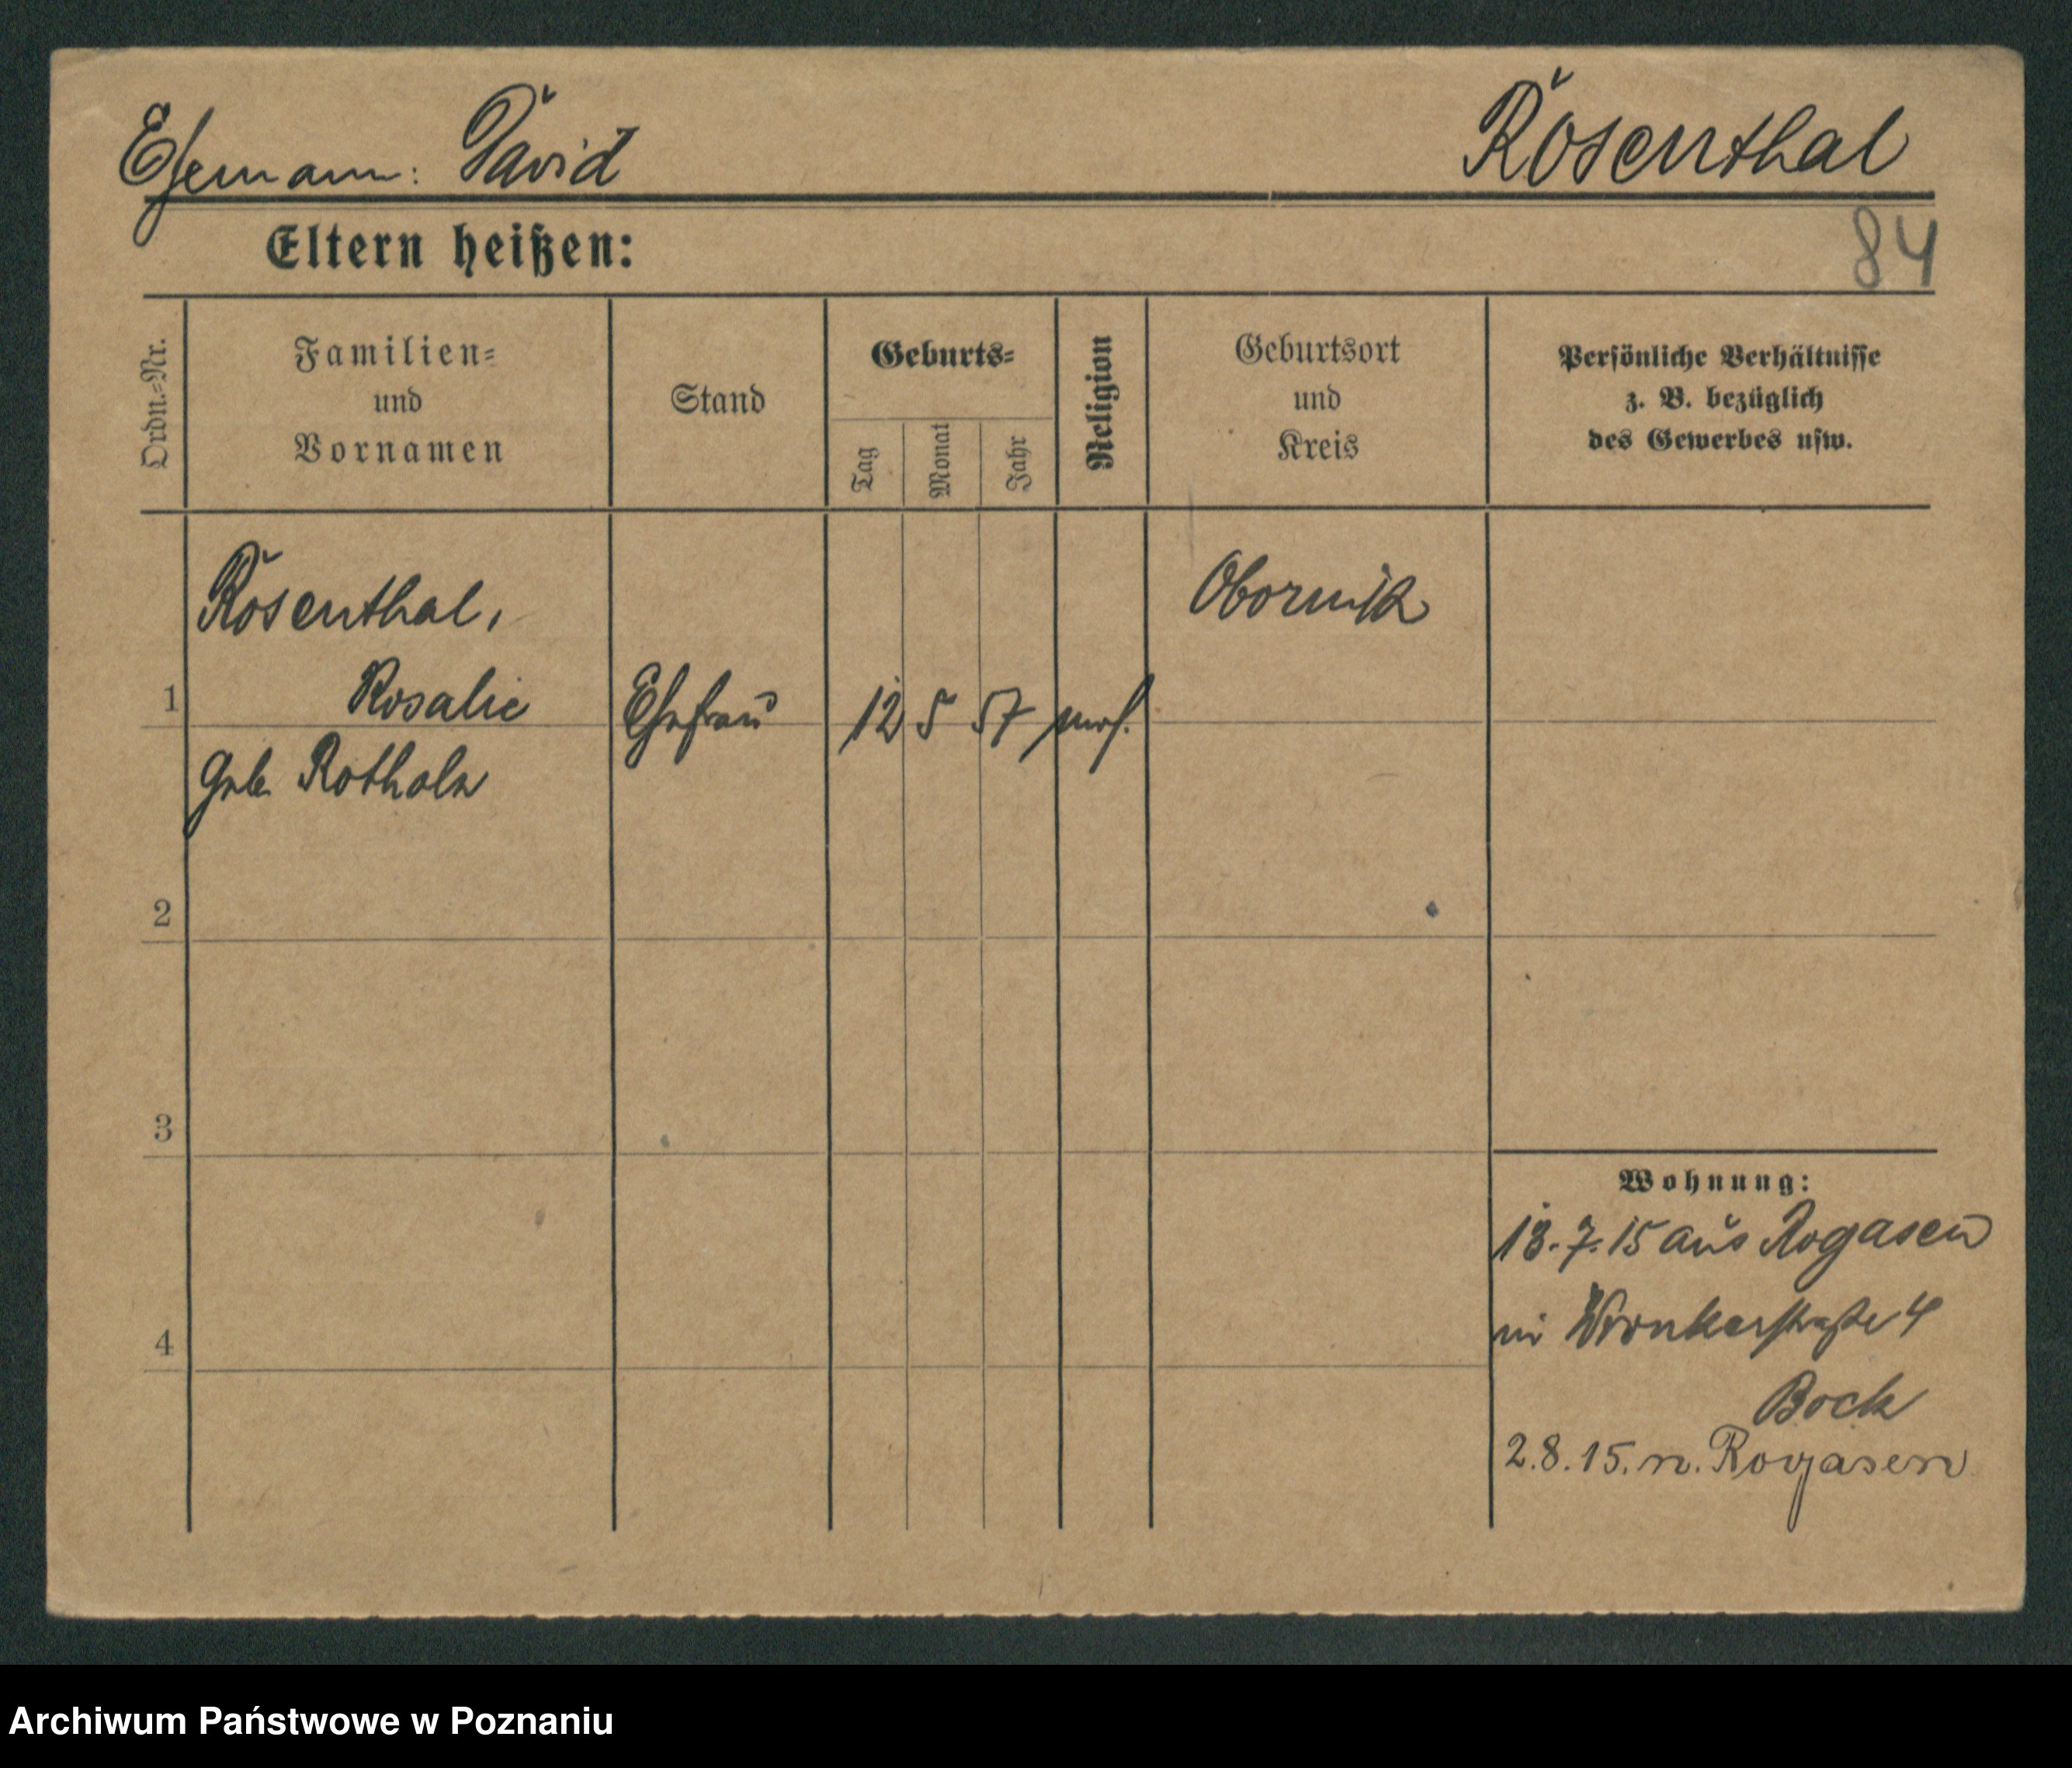 Ehemann: David Rosenthal
84
Eltern heißen:
Ordn.-Nr.
Familien-
und
Vornamen
Stand
Geburts-
Tag
Monat
Jahr
Religion
Geburtsort
und
Kreis
Persönliche Verhältnisse
z. B. bezüglich
des Gewerbes usw.
Rosenthal,
Obornik
1
Rosalie
Ehefrau
12 5 57 mos.
geb. Rotholz
2
3
4
Wohnung:
13.7.15 aus Rogasen
in Wronkerstraße 4
Bock
2.8.15. n. Rogasen
Archiwum Państwowe w Poznaniu